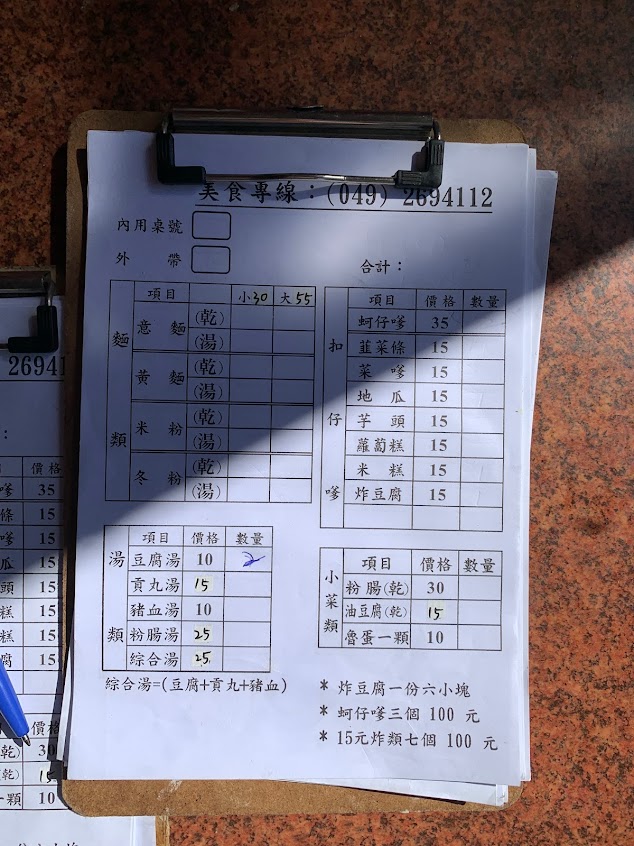 美食專線：(049) 2694112
內用桌號
外 帶
合計：
麵類
項目 小30 大55
意麵 (乾)
(湯)
黃麵 (乾)
(湯)
米粉 (乾)
(湯)
冬粉 (乾)
(湯)
扣仔嗲
項目 價格 數量
蚵仔嗲 35
韮菜條 15
菜嗲 15
地瓜 15
芋頭 15
蘿蔔糕 15
米糕 15
炸豆腐 15
湯類
項目 價格 數量
豆腐湯 10 2
貢丸湯 15
豬血湯 10
粉腸湯 25
綜合湯 25
綜合湯=(豆腐+貢丸+豬血)
小菜類
項目 價格 數量
粉腸(乾) 30
油豆腐(乾) 15
魯蛋一顆 10
* 炸豆腐一份六小塊
* 蚵仔嗲三個 100 元
* 15元炸類七個 100 元
26941
：
價格
嗲 35
條 15
嗲 15
瓜 15
頭 15
糕 15
糕 15
腐 15
價格
乾) 30
乾) 15
一顆 10